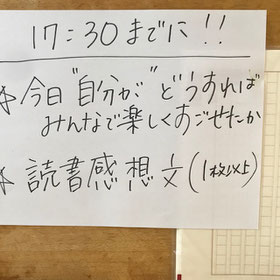 17:30までに!!
☆今日"自分が"どうすれば
みんなで楽しくすごせたか
☆読書感想文(1枚以上)